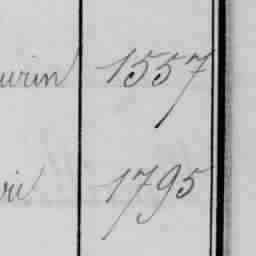 urin 1557
rie 1795